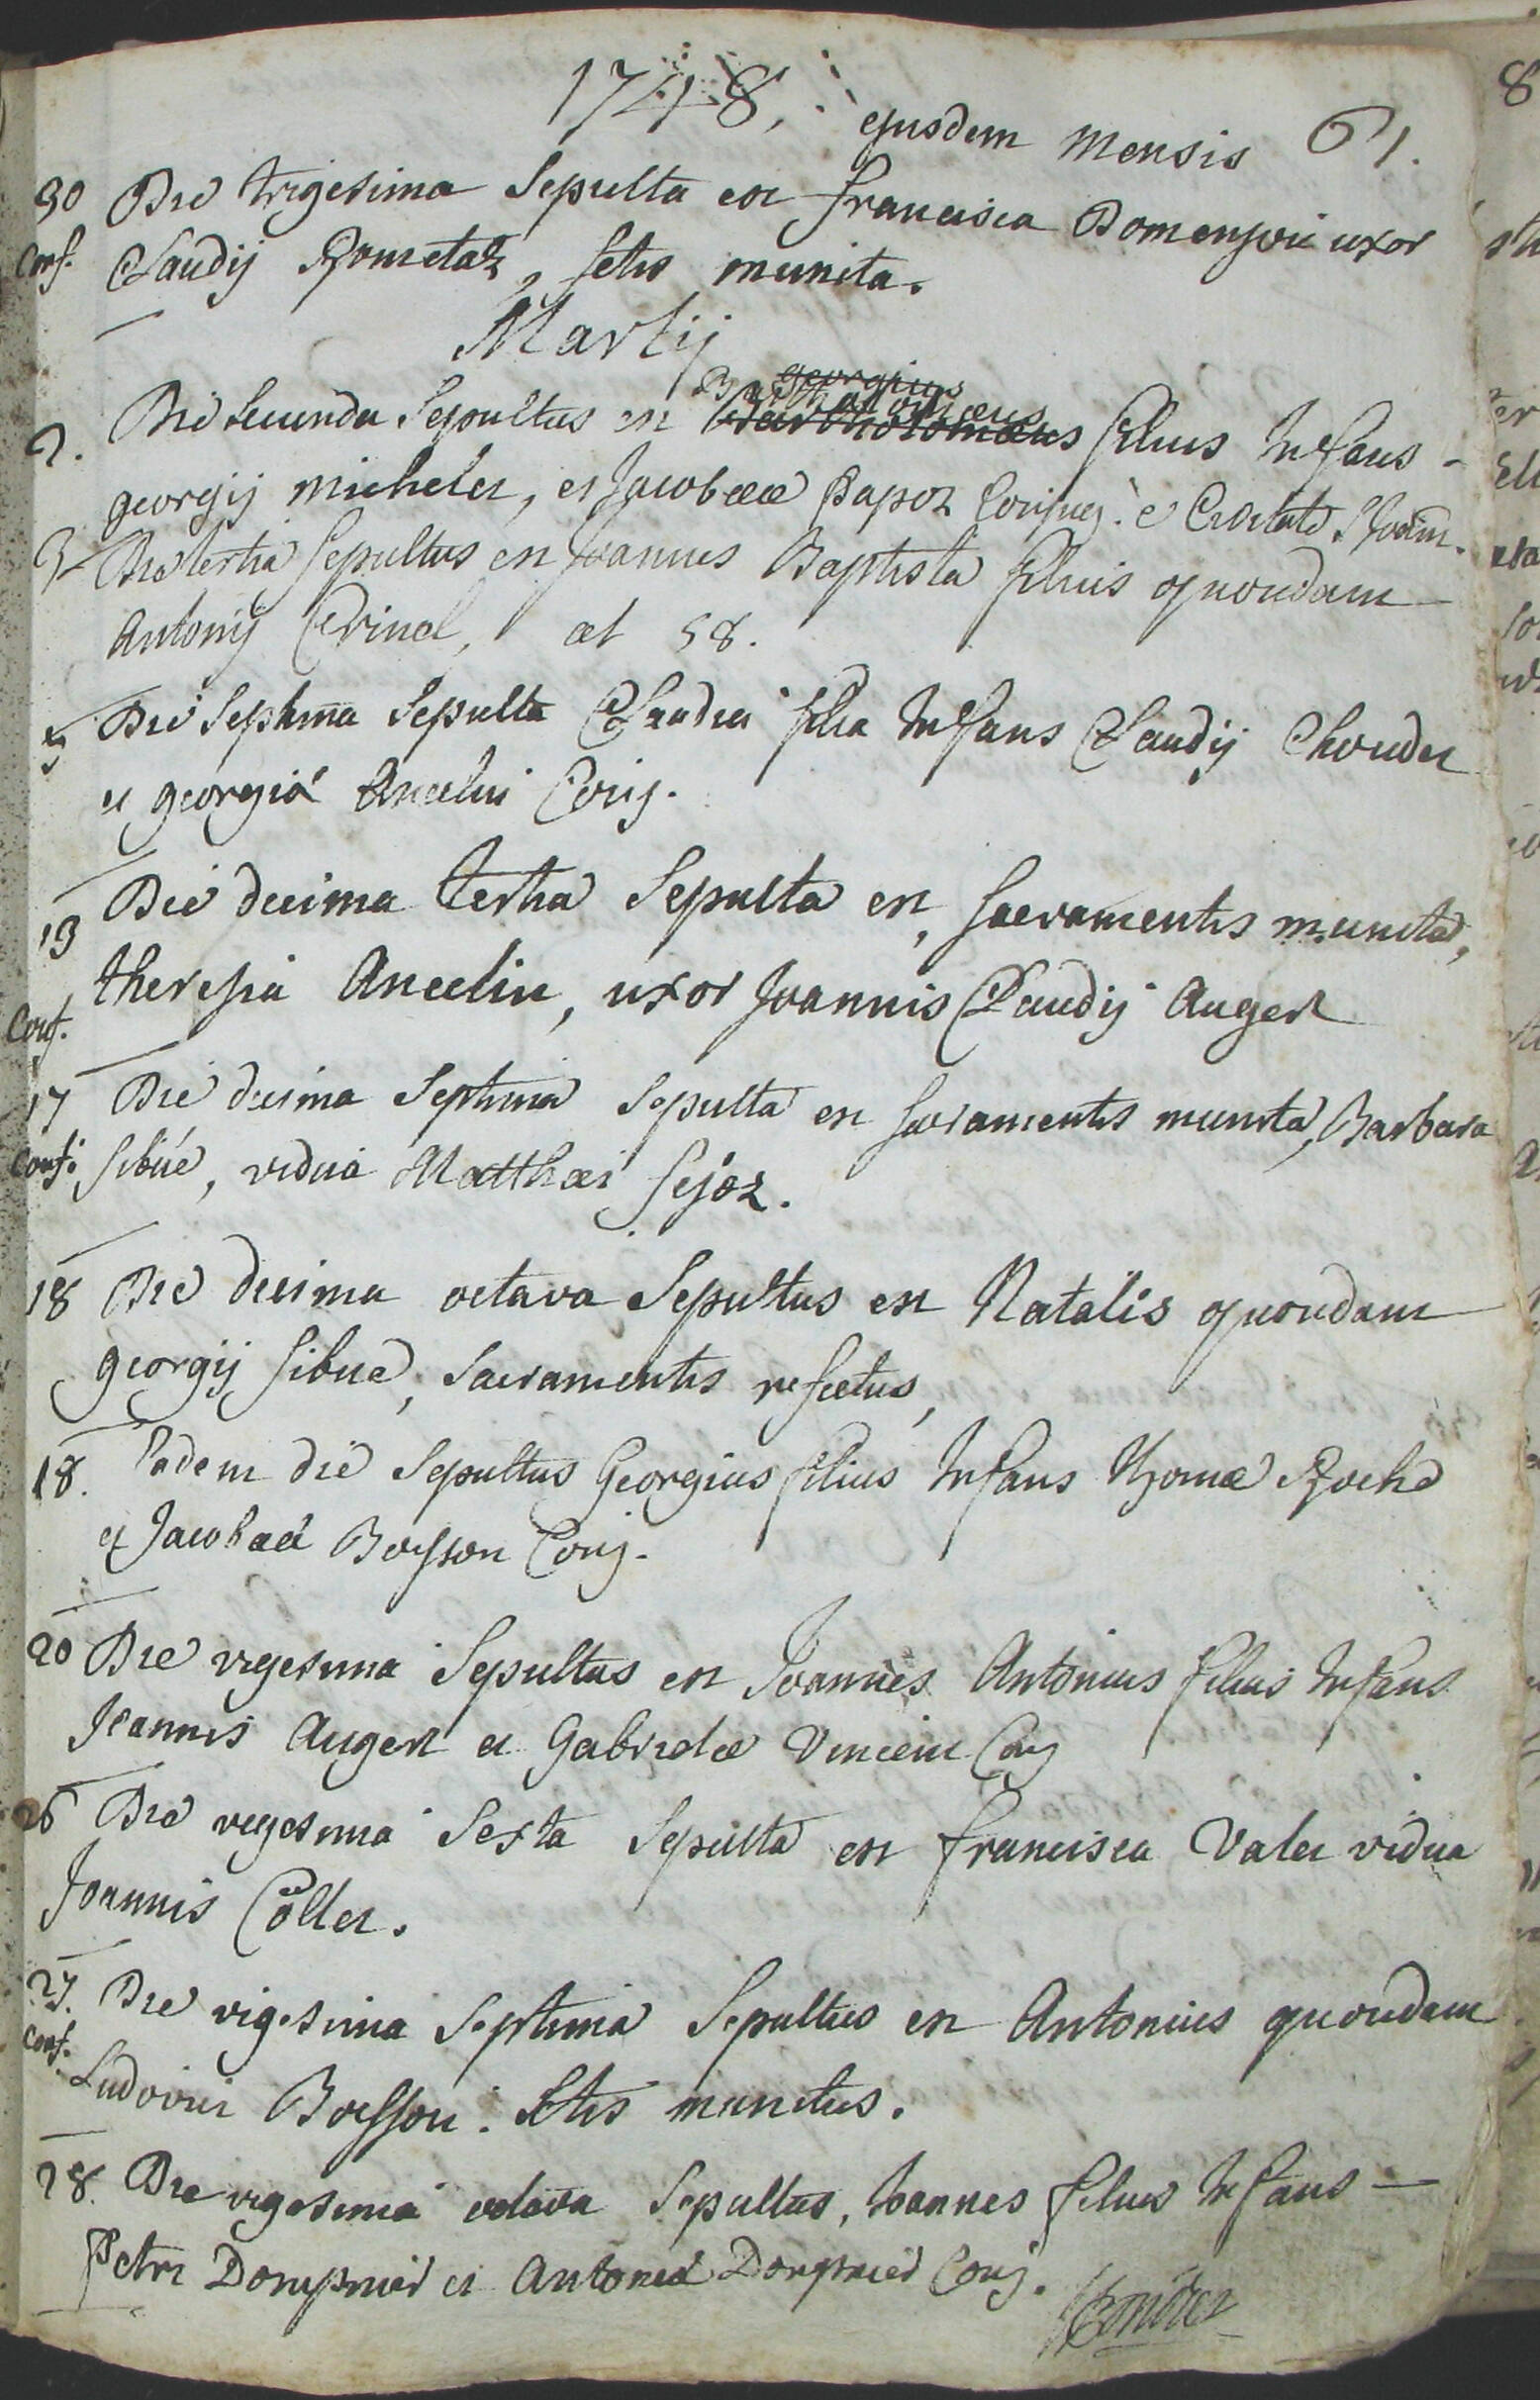 1748, ejusdem mensis 61.
30 Die trigesima Sepulta est francisca Domenjoü uxor
Conf. Claudij Rometaz, sctis munita.
Martij
georgius
Bartholomæus
2. Die Secunda Sepultus est Bartholomæus filius Infans -
georgij michelet, et Jacobeæ Papoz Conjug. è Civitate
3 Die tertia Sepultus est Joannes Baptista filius quondam
Antonij Crinel, æt 58.
Die Septima Sepulta Claudia filia Infans Claudij Choudet
et georgiæ Ancelin Conj.
13 Die decima tertia Sepulta est, Sacramentis munita,
Conf. theresia Ancelin, uxor Joannis Claudij Augert
17 Die decima Septima Sepulta est sacramentis munita, Barbara
Conf. sibüé, vidua Matthæi sejoz.
18 Die decima octava Sepultus est Natalis quondam
georgij sibué, Sacramentis refectus,
18. Eadem die Sepultus Georgius filius Infans Thomæ Roche
et Jacobeæ Boisson Conj.
20 Die vigesima Sepultus est Joannes Antonius filius Infans
Joannis Augert et Gabrielæ Vincent Conj
26 Die vigesima Sexta Sepulta est francisca Valet vidua
Joannis Côllet.
27. Die vigesima Septima Sepultus est Antonius quondam
Conf. Ludovici Boisson. Sctis munitus.
28. Die vigesima octava Sepultus, Joannes filius Infans -
Petri Dompnié et Antoniæ Dompnié Conj.